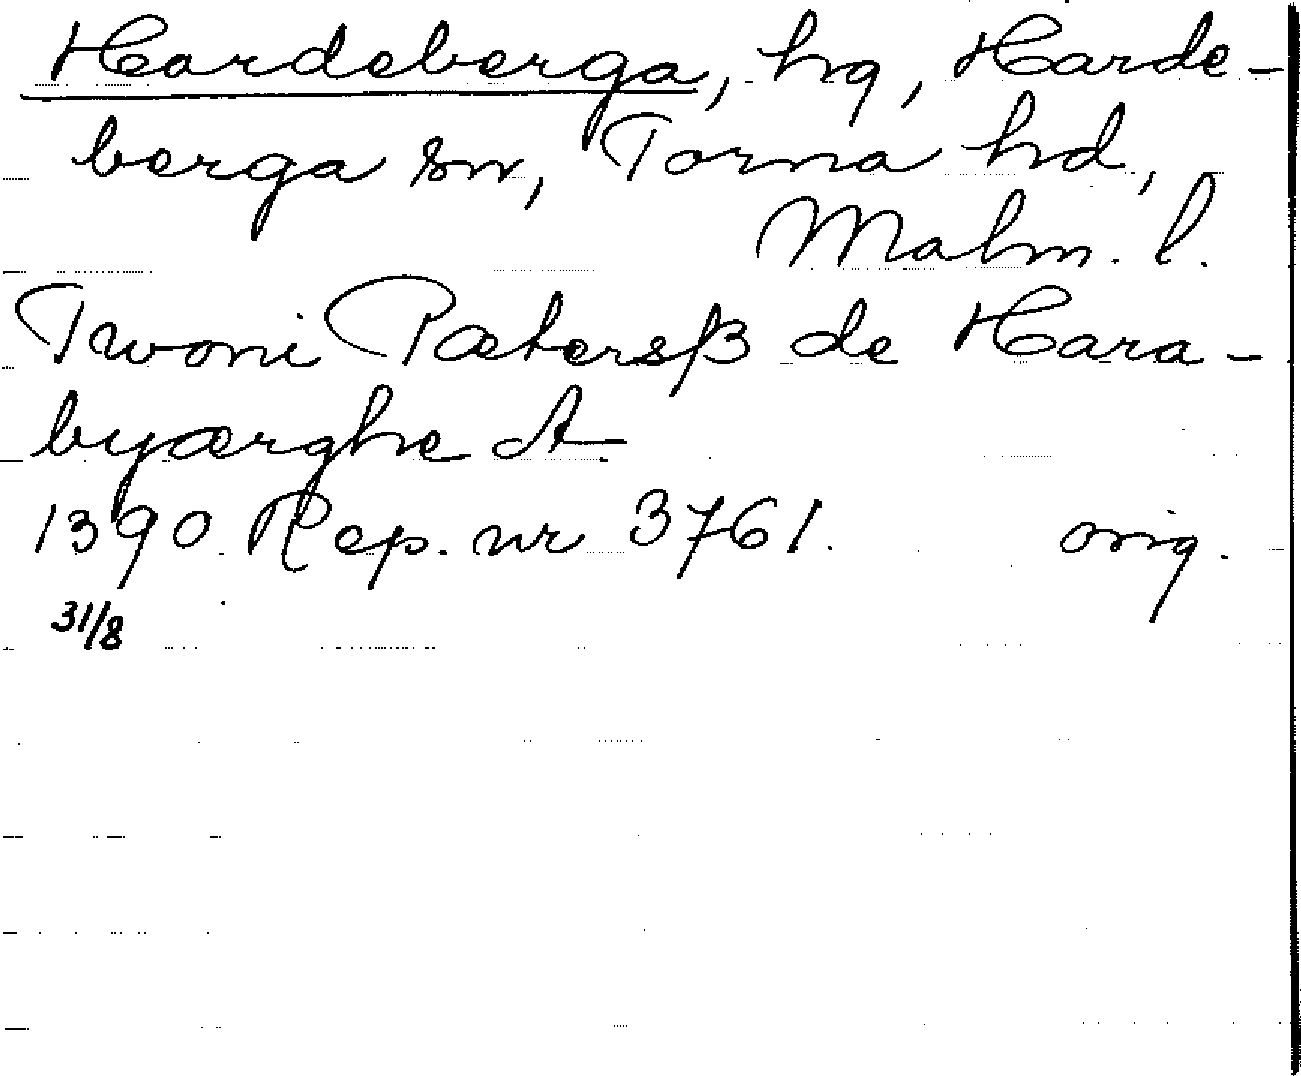 Hardeberga, hg, Harde-
berga sn, Torna hd,
Malm. l.
Twoni Pætersß de Hara-
byærghe A
1390 Rep. nr 3761. orig.
31/8